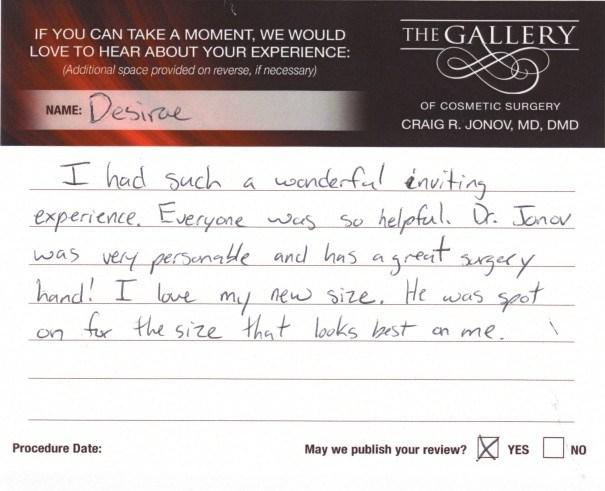 IF YOU CAN TAKE A MOMENT, WE WOULD
LOVE TO HEAR ABOUT YOUR EXPERIENCE:
(Additional space provided on reverse, if necessary)
NAME: Desirae
THE GALLERY
OF COSMETIC SURGERY
CRAIG R. JONOV, MD, DMD
I had such a wonderful inviting
experience. Everyone was so helpful. Dr. Jonov
was very personable and has a great surgery
hand! I love my new size. He was spot
on for the size that looks best on me.
Procedure Date:
May we publish your review? YES NO